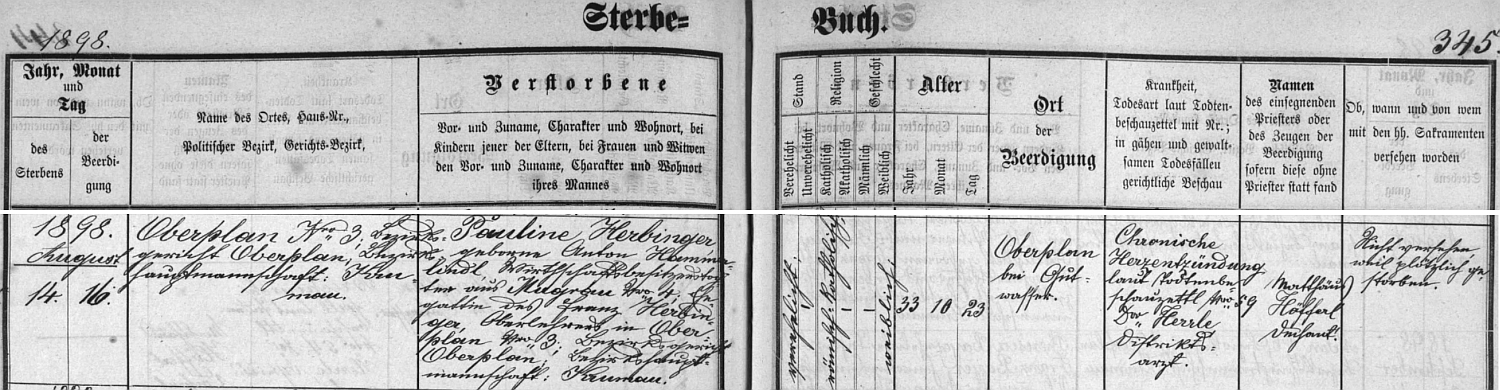 Sterbe= Buch.
1898.
345
Jahr, Monat
und
Tag
des
Sterbens
der
Beerdi-
gung
Name des Ortes, Haus-Nr.,
Politischer Bezirk, Gerichts-Bezirk,
Verstorbene
Vor- und Zuname, Charakter und Wohnort, bei
Kindern jener der Eltern, bei Frauen und Witwen
den Vor- und Zuname, Charakter und Wohnort
ihres Mannes
Stand
Verehelicht
Unverehelicht
Religion
Katholisch
Akatholisch
Geschlecht
Männlich
Weiblich
Alter
Jahr
Monat
Tag
Ort
der
Beerdigung
Krankheit,
Todesart laut Todten-
beschauzettel mit Nr.;
in gähen und gewalt-
samen Todesfällen
gerichtliche Beschau
Namen
des einsegnenden
Priesters oder
des Zeugen der
Beerdigung
sofern diese ohne
Priester statt fand
Ob, wann und von wem
mit den hh. Sakramenten
versehen worden
1898.
August
14. 16.
Oberplan Nro 3; Bezirks-
gericht Oberplan, Bezirks-
hauptmannschaft: Kru-
mau.
Pauline Herbinger
geborne Anton Hammer-
lindl, Wirthschaftsbesitzerstoch-
ter aus Nro 4; Ge-
gattin des Franz Herbin-
ger, Oberlehrers in Ober-
plan Nro 3; Bezirksgericht
Oberplan; Bezirkshaupt-
mannschaft: Krumau.
verehelicht
römisch-katholisch
weiblich
33 10 23
Oberplan
bei Gut-
wasser.
Chronische
Herzentzündung
laut Todtenbe-
schauzettl Nro 59
Dr Herrle
Distrikts-
arzt.
Matthäus
Dechant.
Nicht versehen
weil plötzlich ge-
storben.